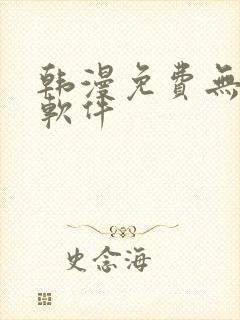 韩漫免費無
軟件
史念海